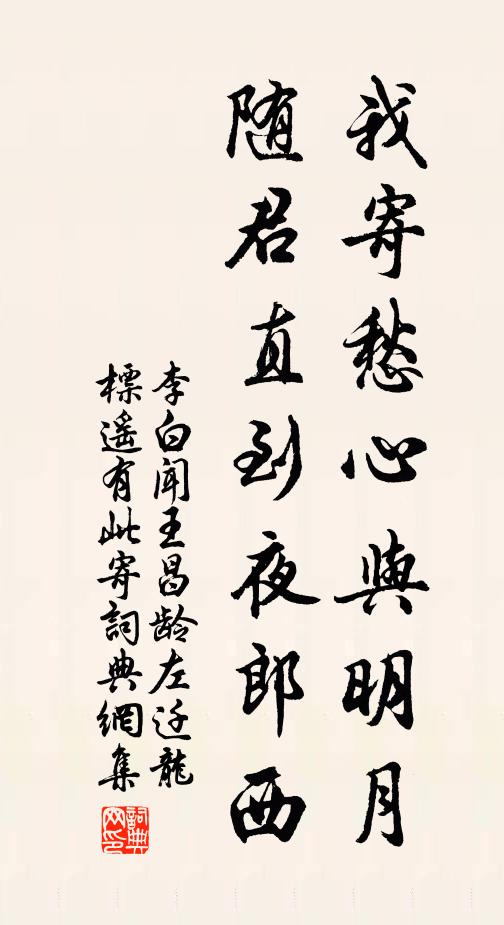 我寄愁心與明月
随君直到夜郎西
李白闻王昌龄左迁龍
標遥有此寄詞典網集
詞典網印